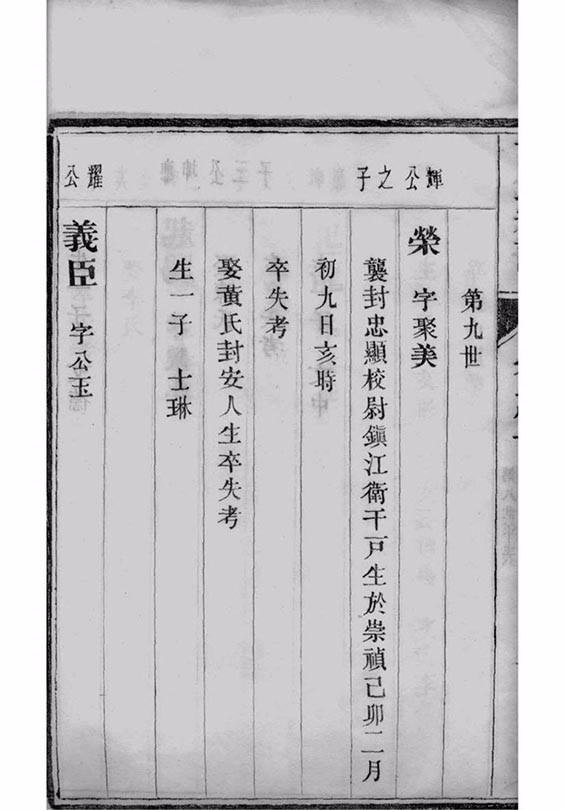 第九世
輝公之子
榮 字聚美
襲封忠顯校尉鎮江衛千戸生於崇禎己卯二月
初九日亥時
卒失考
娶黃氏封安人生卒失考
生一子 士琳
耀公
義臣 字公玉